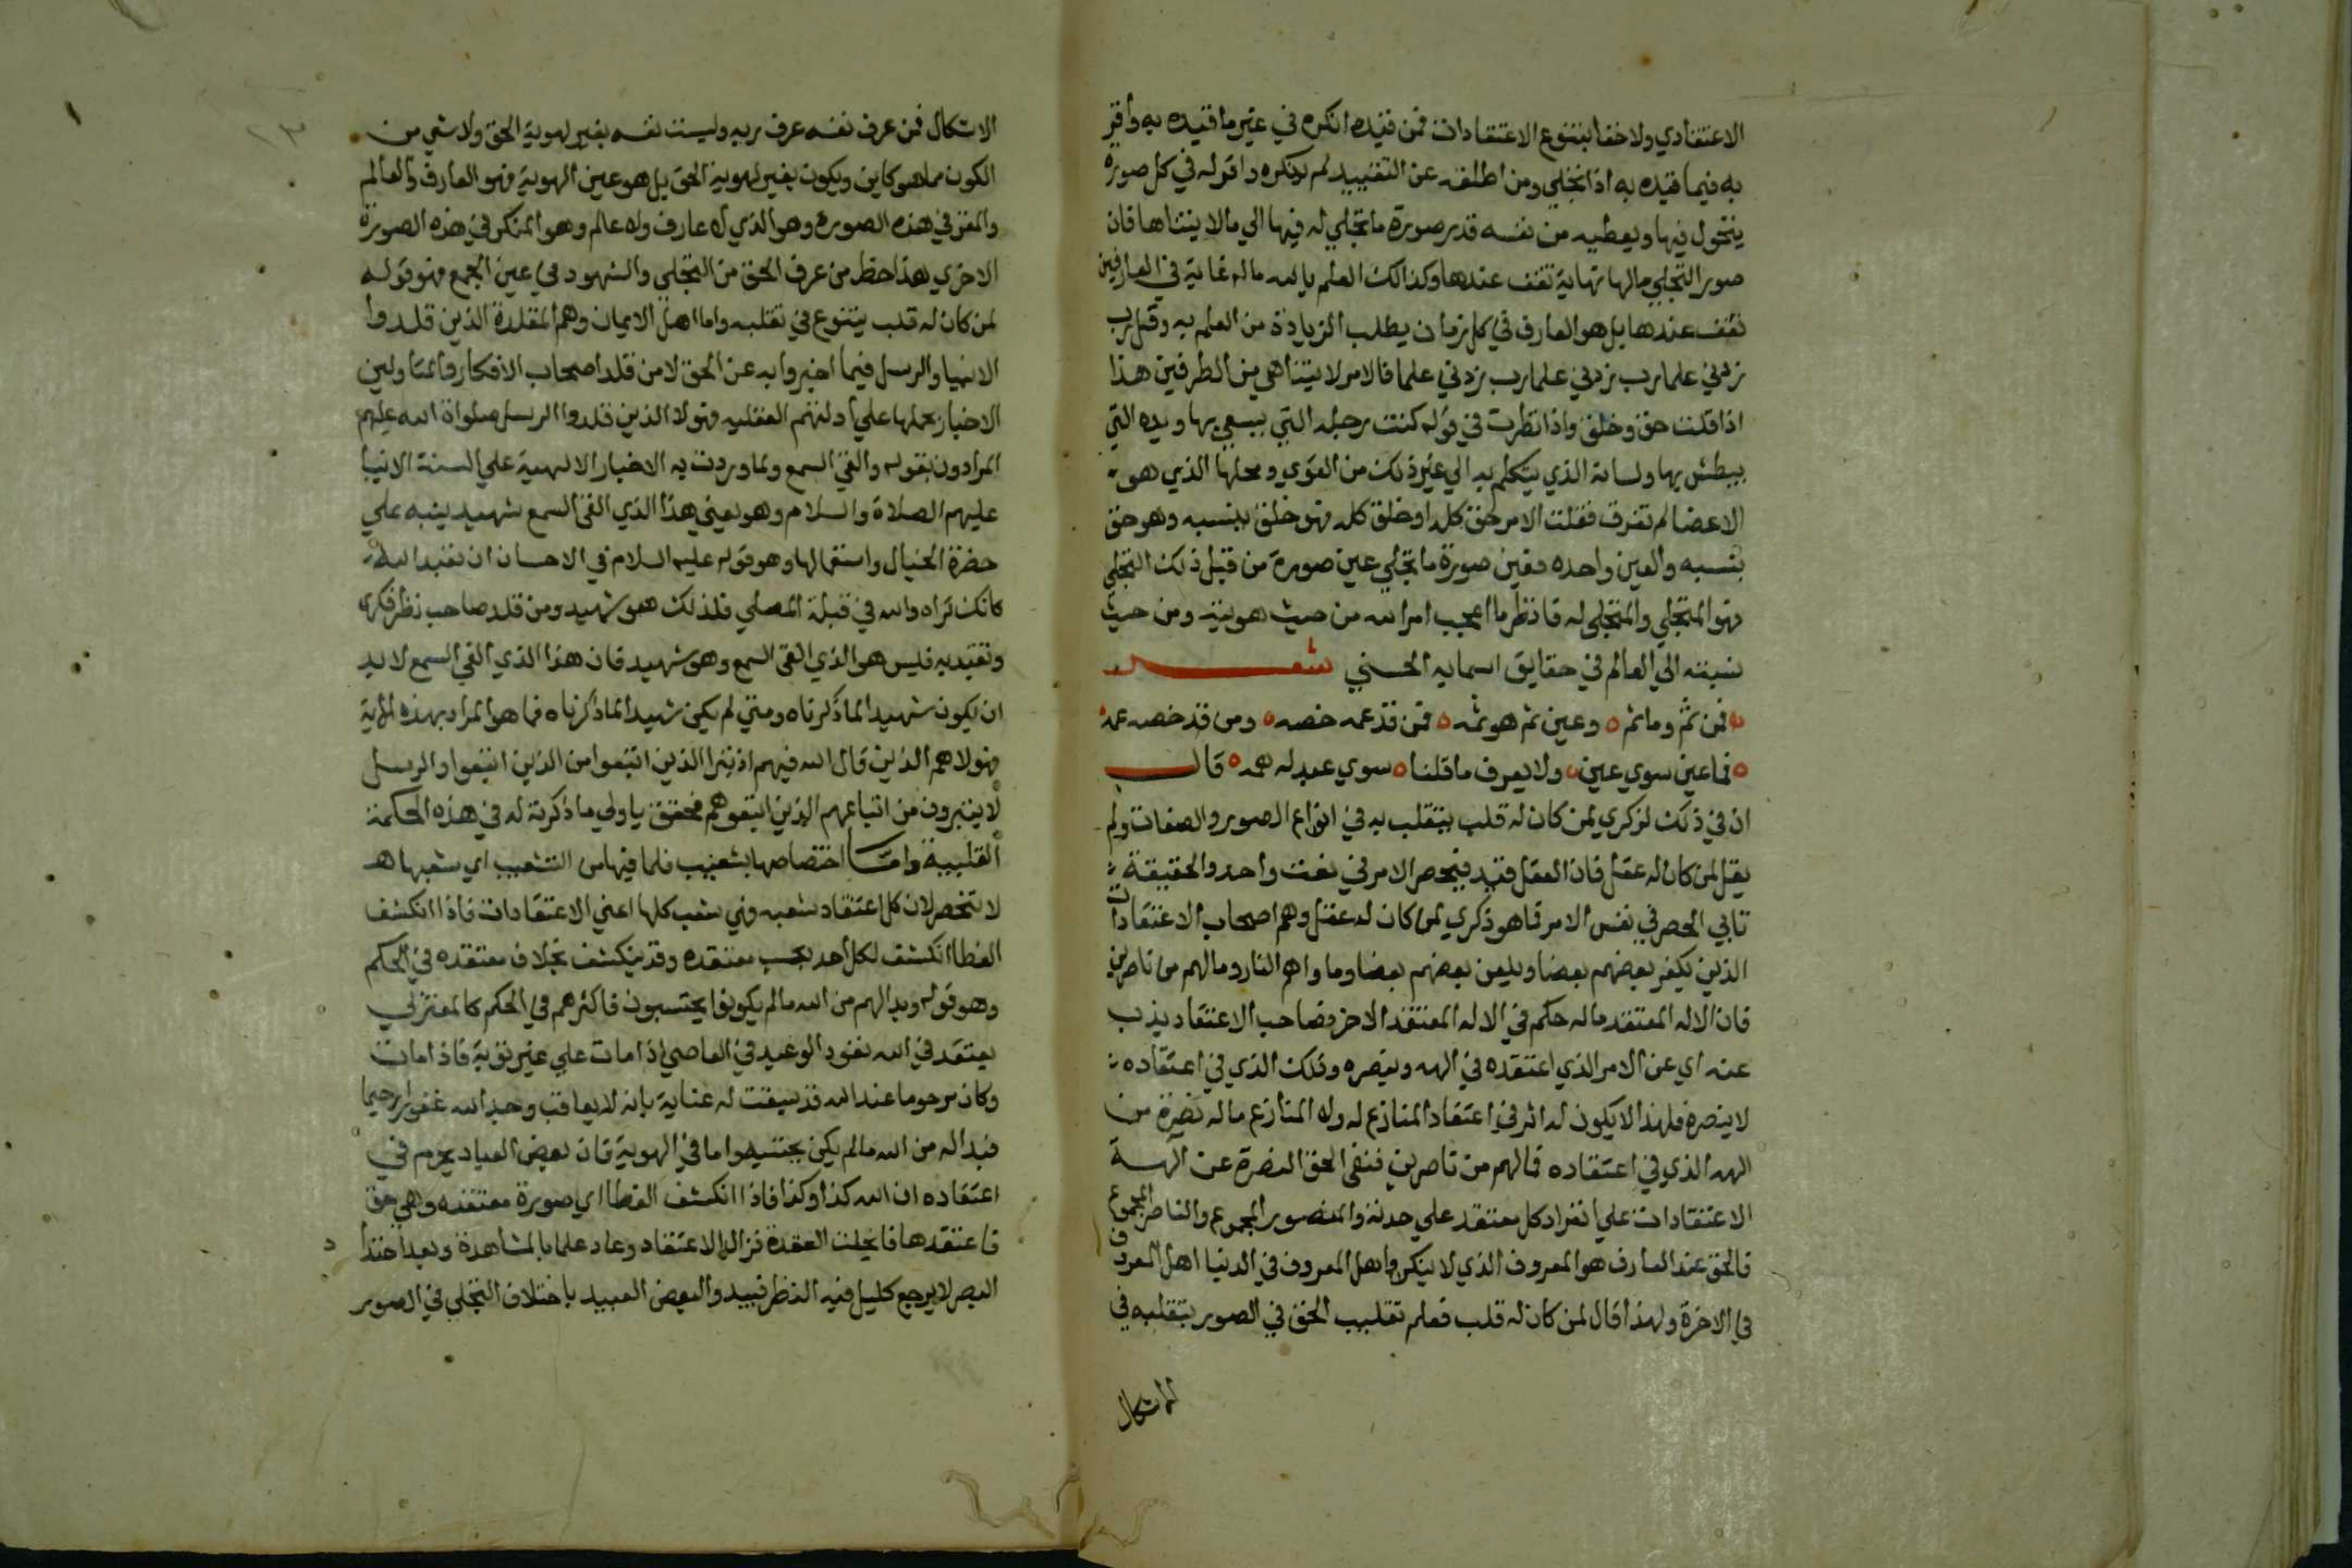 الاعتقادي ولا خفا بتنوع الاعتقادات فمن قيده انكره في غير ما قيده به واقر
به فيما قيده به اذا تجلي ومن اطلقه عن التقييد لم ينكره واقر له في كل صورة
يتحول فيها ويعطيه من نفسه قدر صورة ما تجلي له فيها الي مالا يتناها فان
صور التجلي مالها نهاية تقف عندها وكذالك العلم بالله ماله غاية في العارفين
تقف عندها بل هو العارف في كل زمان يطلب الزيادة من العلم به وقل رب
زدني علما رب زدني علما رب زدني علما فالامر لا يتناهي من الطرفين هذا
اذا قلت حق وخلق واذا نظرت في قوله كنت رجله التي يسعي بها ويده التي
يبطش بها ولسانه الذي يتكلم به الي غير ذلك من القوي ومحلها الذي هو
الاعضا لم تفرق فقلت الامر حق كله او خلق كله فهو خلق بنسبه وهو حق
بنسبه والعين واحده فعين صورة ما تجلي عين صورة من قبل ذلك التجلي
فهو المتجلي والمتجلي له فانظر ما اعجب امر الله من حيث هويته ومن حيث
نسبته الي العالم في حقايق اسمايه الحسني شعر
فمن ثم وما ثم وعين ثم هو ثمه فمن قد عمه خصه ومن قد خصه عمه
فما عين سوي عين ولا يعرف ما قلنا سوي عبد له همه قال
ان في ذلك لذكري لمن كان له قلب يتقلب به في انواع الصور والصفات ولم
يقل لمن كان له عقل فان العقل قيد فيحصر الامر في نعت واحد والحقيقة
تابي الحصر في نفس الامر فما هو ذكري لمن كان له عقل وهم اصحاب الاعتقادات
الذين يكفر بعضهم بعضا ويلعن بعضهم بعضا وما واهم النار ومالهم من ناصرين
فان الاله المعتقد ماله حكم في الاله المعتقد الاخر فصاحب الاعتقاد يذب
عنه اي عن الامر الذي اعتقده في الهه وينصره وذلك الذي في اعتقاده
لا ينصره فلهذا لا يكون له اثر في اعتقاد المنازع له وله المنازع ماله نصرة من
الهه الذي في اعتقاده فمالهم من ناصرين فنفي الحق النصرة عن الهة
الاعتقادات علي انفراد كل معتقد علي حدته والمنصور المجموع والناصر المجموع
فالحق عند العارف هو المعروف الذي لا ينكر واهل المعروف في الدنيا اهل المعروف
في الاخرة ولهذا قال لمن كان له قلب فعلم تقليب الحق في الصور بتقليبه في
الاشكال
الاشكال فمن عرف نفسه عرف ربه وليست نفسه بغير لهوية الحق ولا شي من
الكون مما هو كاين ويكون بغير لهوية الحق بل هو عين الهوية فهو العارف والعالم
والمقر في هذه الصورة وهو الذي لا عارف ولا عالم وهو المنكر في هذه الصورة
الاخري هذا حظ من عرف الحق من التجلي والشهود في عين الجمع فهو قوله
لمن كان له قلب يتنوع في تقلبه واما اهل الايمان وهم المقلدة الذين قلدوا
الانبيا والرسل فيما اخبروا به عن الحق لا من قلد اصحاب الافكار والمتاولين
الاخبار بحملها علي ادلتهم العقليه فهولاد الذين قلدوا الرسل صلواة الله عليهم
المرادون بقوله والقي السمع ولما وردت به الاخبار الالهية علي السنة الانبيا
عليهم الصلاة والسلام وهو يعني هذا الذي القي السمع شهيد ينبه علي
حضرة الخيال واستعمالها وهو قوله عليه السلام في الاحسان ان تعبد الله
كانك تراه والله في قبلة المصلي فلذلك هو شهيد ومن قلد صاحب نظر فكري
وتقيد به فليس هو الذي القي السمع وهو شهيد فان هذا الذي القي السمع لا بد
ان يكون شهيدا لما ذكرناه ومتي لم يكن شهيدا لما ذكرناه فما هو المراد بهذه الاية
فهولا هم الذين قال الله فيهم اذ تبرا الذين اتبعوا من الذين اتبعوا والرسل
لا يتبرون من اتباعهم الذين اتبعوهم فحقق ياولي ما ذكرته له في هذه الحكمة
القلبية واما اختصاصها بشعيب فلما فيها من التشعيب اي شعبها
لا تنحصر لان كل اعتقاد شعبه فهي شعب كلها اعني الاعتقادات فاذا انكشف
الغطا انكشف لكل احد بحسب معتقده وقد ينكشف بخلاف معتقده في الحكم
وهو قوله وبدا لهم من الله مالم يكونوا يحتسبون فاكثرهم في الحكم كالمعتزلي
يعتقد في الله نفوذ الوعيد في العاصي اذا مات علي غير توبة فاذا مات
وكان مرحوما عند الله قد سبقت له عناية بانه لا يعاقب وجد الله غفورا رحيما
فبدا له من الله مالم يكن يحتسبه واما في الهوية فان بعض العباد يجزم في
اعتقاده ان الله كذا وكذا فاذا انكشف الغطا اي صورة معتقده وهي حق
فاعتقدها فانحلت العقدة فزال الاعتقاد وعاد علما بالمشاهدة وبعد احتدا
البصر لا يرجع كليل فيه النظر فيبدو البعض العبيد باختلاف التجلي في الصور